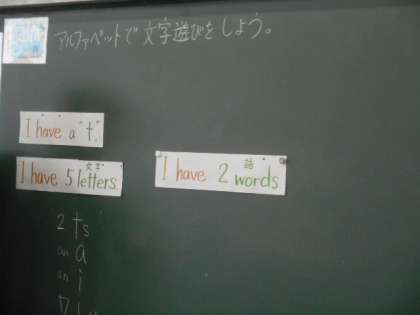 アルファベットで文字遊びをしよう。
I have a "t".
文字
I have 5 letters.
語
I have 2 words
2 ts
an a
an i